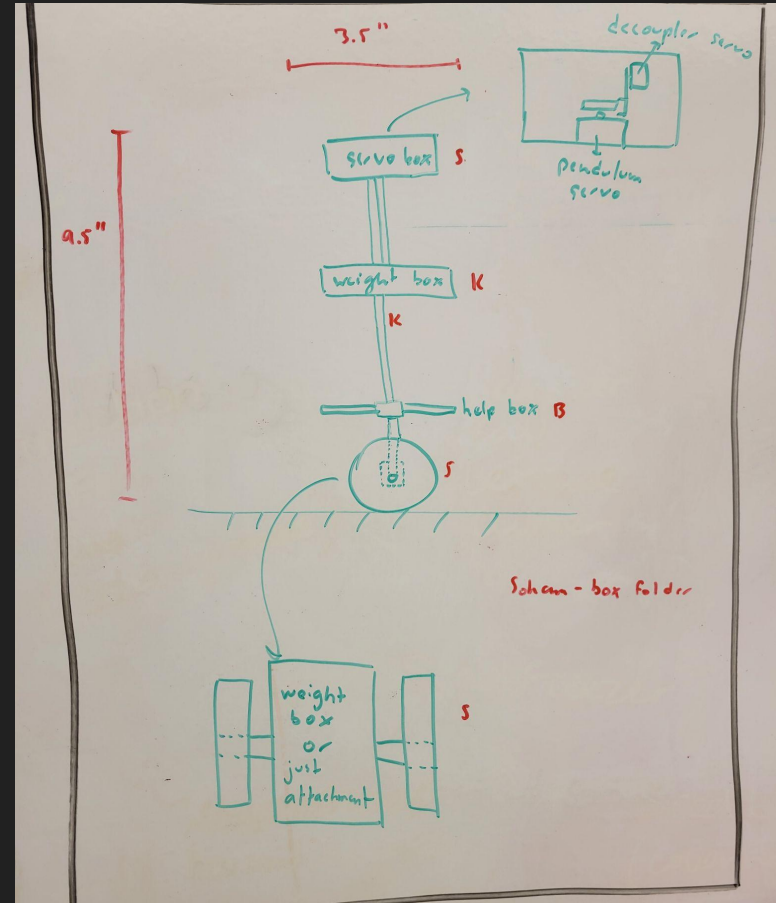 3.5"
decoupler servo
servo box S
pendulum
servo
9.5"
weight box K
K
help box B
S
Soham - box folder
weight
box
or
just
attachment
S